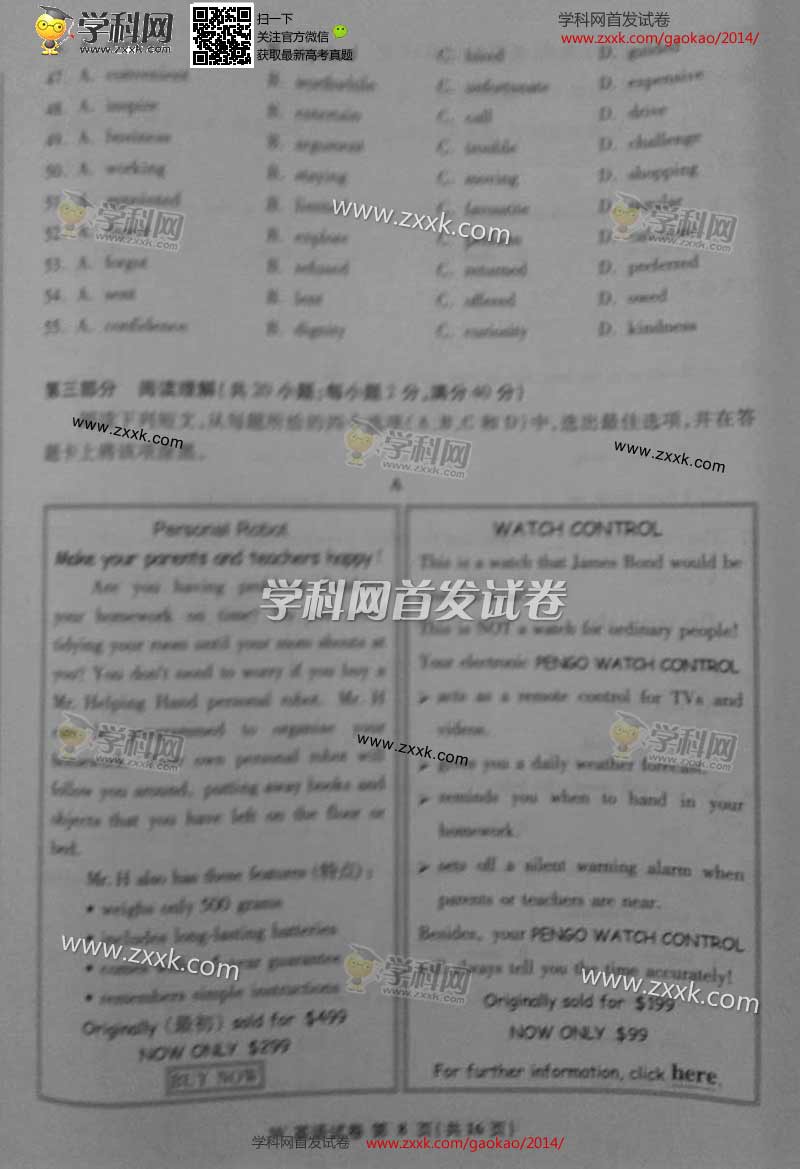 学科网
www.zxxk.com
扫一下
关注官方微信
获取最新高考真题
学科网首发试卷
www.zxxk.com/gaokao/2014/
C.
D. guided
47. A. convenient
B. worthwhile
C. unfortunate
D. expensive
48. A. inspire
B. entertain
C. call
D. drive
49. A. business
B. argument
C. trouble
D. challenge
50. A. working
B. staying
C. moving
D. shopping
51. A.
B.
C. favourite
D. regular
52. A.
B. explore
C.
D.
53. A. forgot
B. refused
C. returned
D. preferred
54. A. sent
B. lent
C. offered
D. saved
55. A. confidence
B. dignity
C. curiosity
D. kindness
第三部分 阅读理解(共20小题;每小题2分,满分40分)
阅读下列短文,从每题所给的四个选项(A、B、C和D)中,选出最佳选项,并在答
题卡上将该项涂黑。
A
Personal Robot
Make your parents and teachers happy!
Are you having
your homework on time?
tidying your room until your mom shouts at
you? You don't need to worry if you buy a
Mr. Helping Hand personal robot. Mr. H
to organise your
own personal robot will
follow you around, putting away books and
objects that you have left on the floor or
bed.
Mr. H also has these features (特点):
• weighs only 500 grams
• includes long-lasting batteries
• comes guarantee
• remembers simple instructions
Originally (最初) sold for $499
NOW ONLY $299
BUY NOW
WATCH CONTROL
This is a watch that James Bond would be
This is NOT a watch for ordinary people!
Your electronic PENGO WATCH CONTROL
➢ acts as a remote control for TVs and
videos.
➢ gives you a daily weather forecast.
➢ reminds you when to hand in your
homework.
➢ sets off a silent warning alarm when
parents or teachers are near.
Besides, your PENGO WATCH CONTROL
will always tell you the time accurately!
Originally sold for $199
NOW ONLY $99
For further information, click here.
英语试卷 第 8 页(共16页)
学科网首发试卷 www.zxxk.com/gaokao/2014/